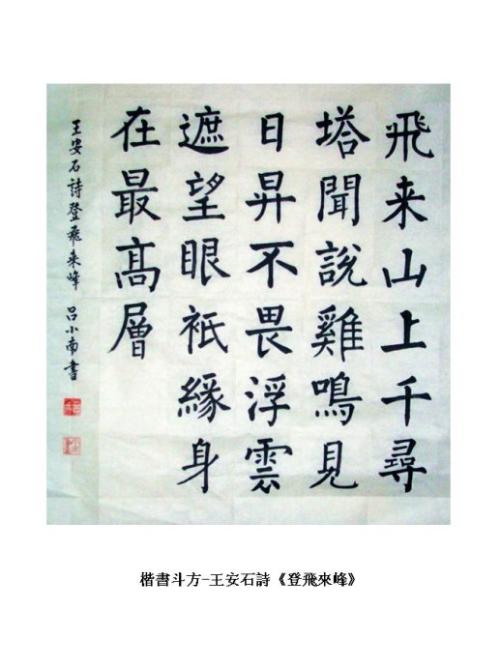 飛来山上千尋
塔聞說雞鳴見
日昇不畏浮雲
遮望眼祇緣身
在最高層
王安石詩登飛来峰 呂小南書
楷書斗方-王安石詩《登飛來峰》